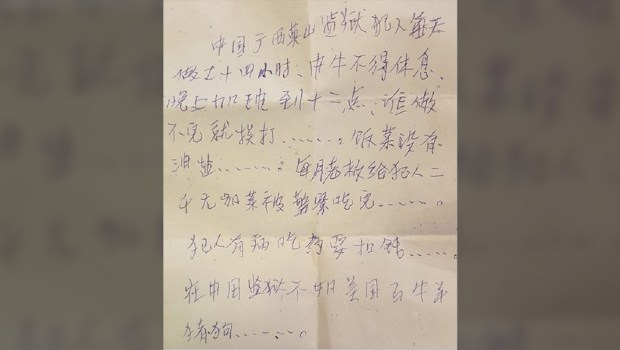 中国广西英山监狱犯人每天
做工十四小时、中午不得休息、
晚上加班到十二点、谁做
不完就挨打.......。饭菜没有
油盐.......。每月老板给犯人二
千元加菜被警察吃完.......。
犯人有病吃药要扣钱.......。
在中国监狱不如美国马牛羊
猪狗.......。